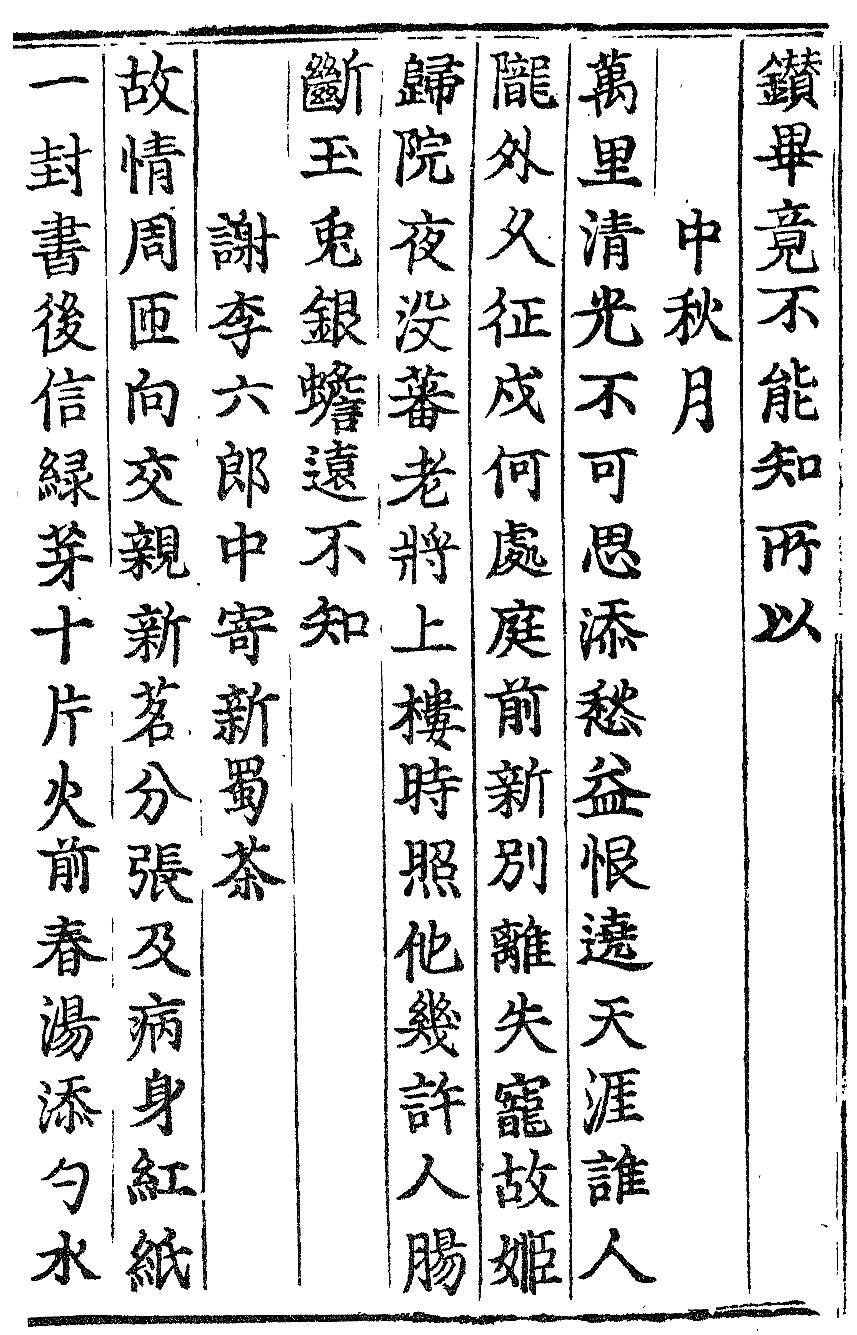 鑚畢竟不能知所以
中秋月
萬里清光不可思添愁益恨遶天涯誰人
隴外久征戍何處庭前新别離失寵故姬
歸院夜没蕃老將上樓時照他幾許人腸
斷玉兎銀蟾遠不知
謝李六郎中寄新蜀茶
故情周匝向交親新茗分張及病身紅紙
一封書後信緑芽十片火前春湯添勺水